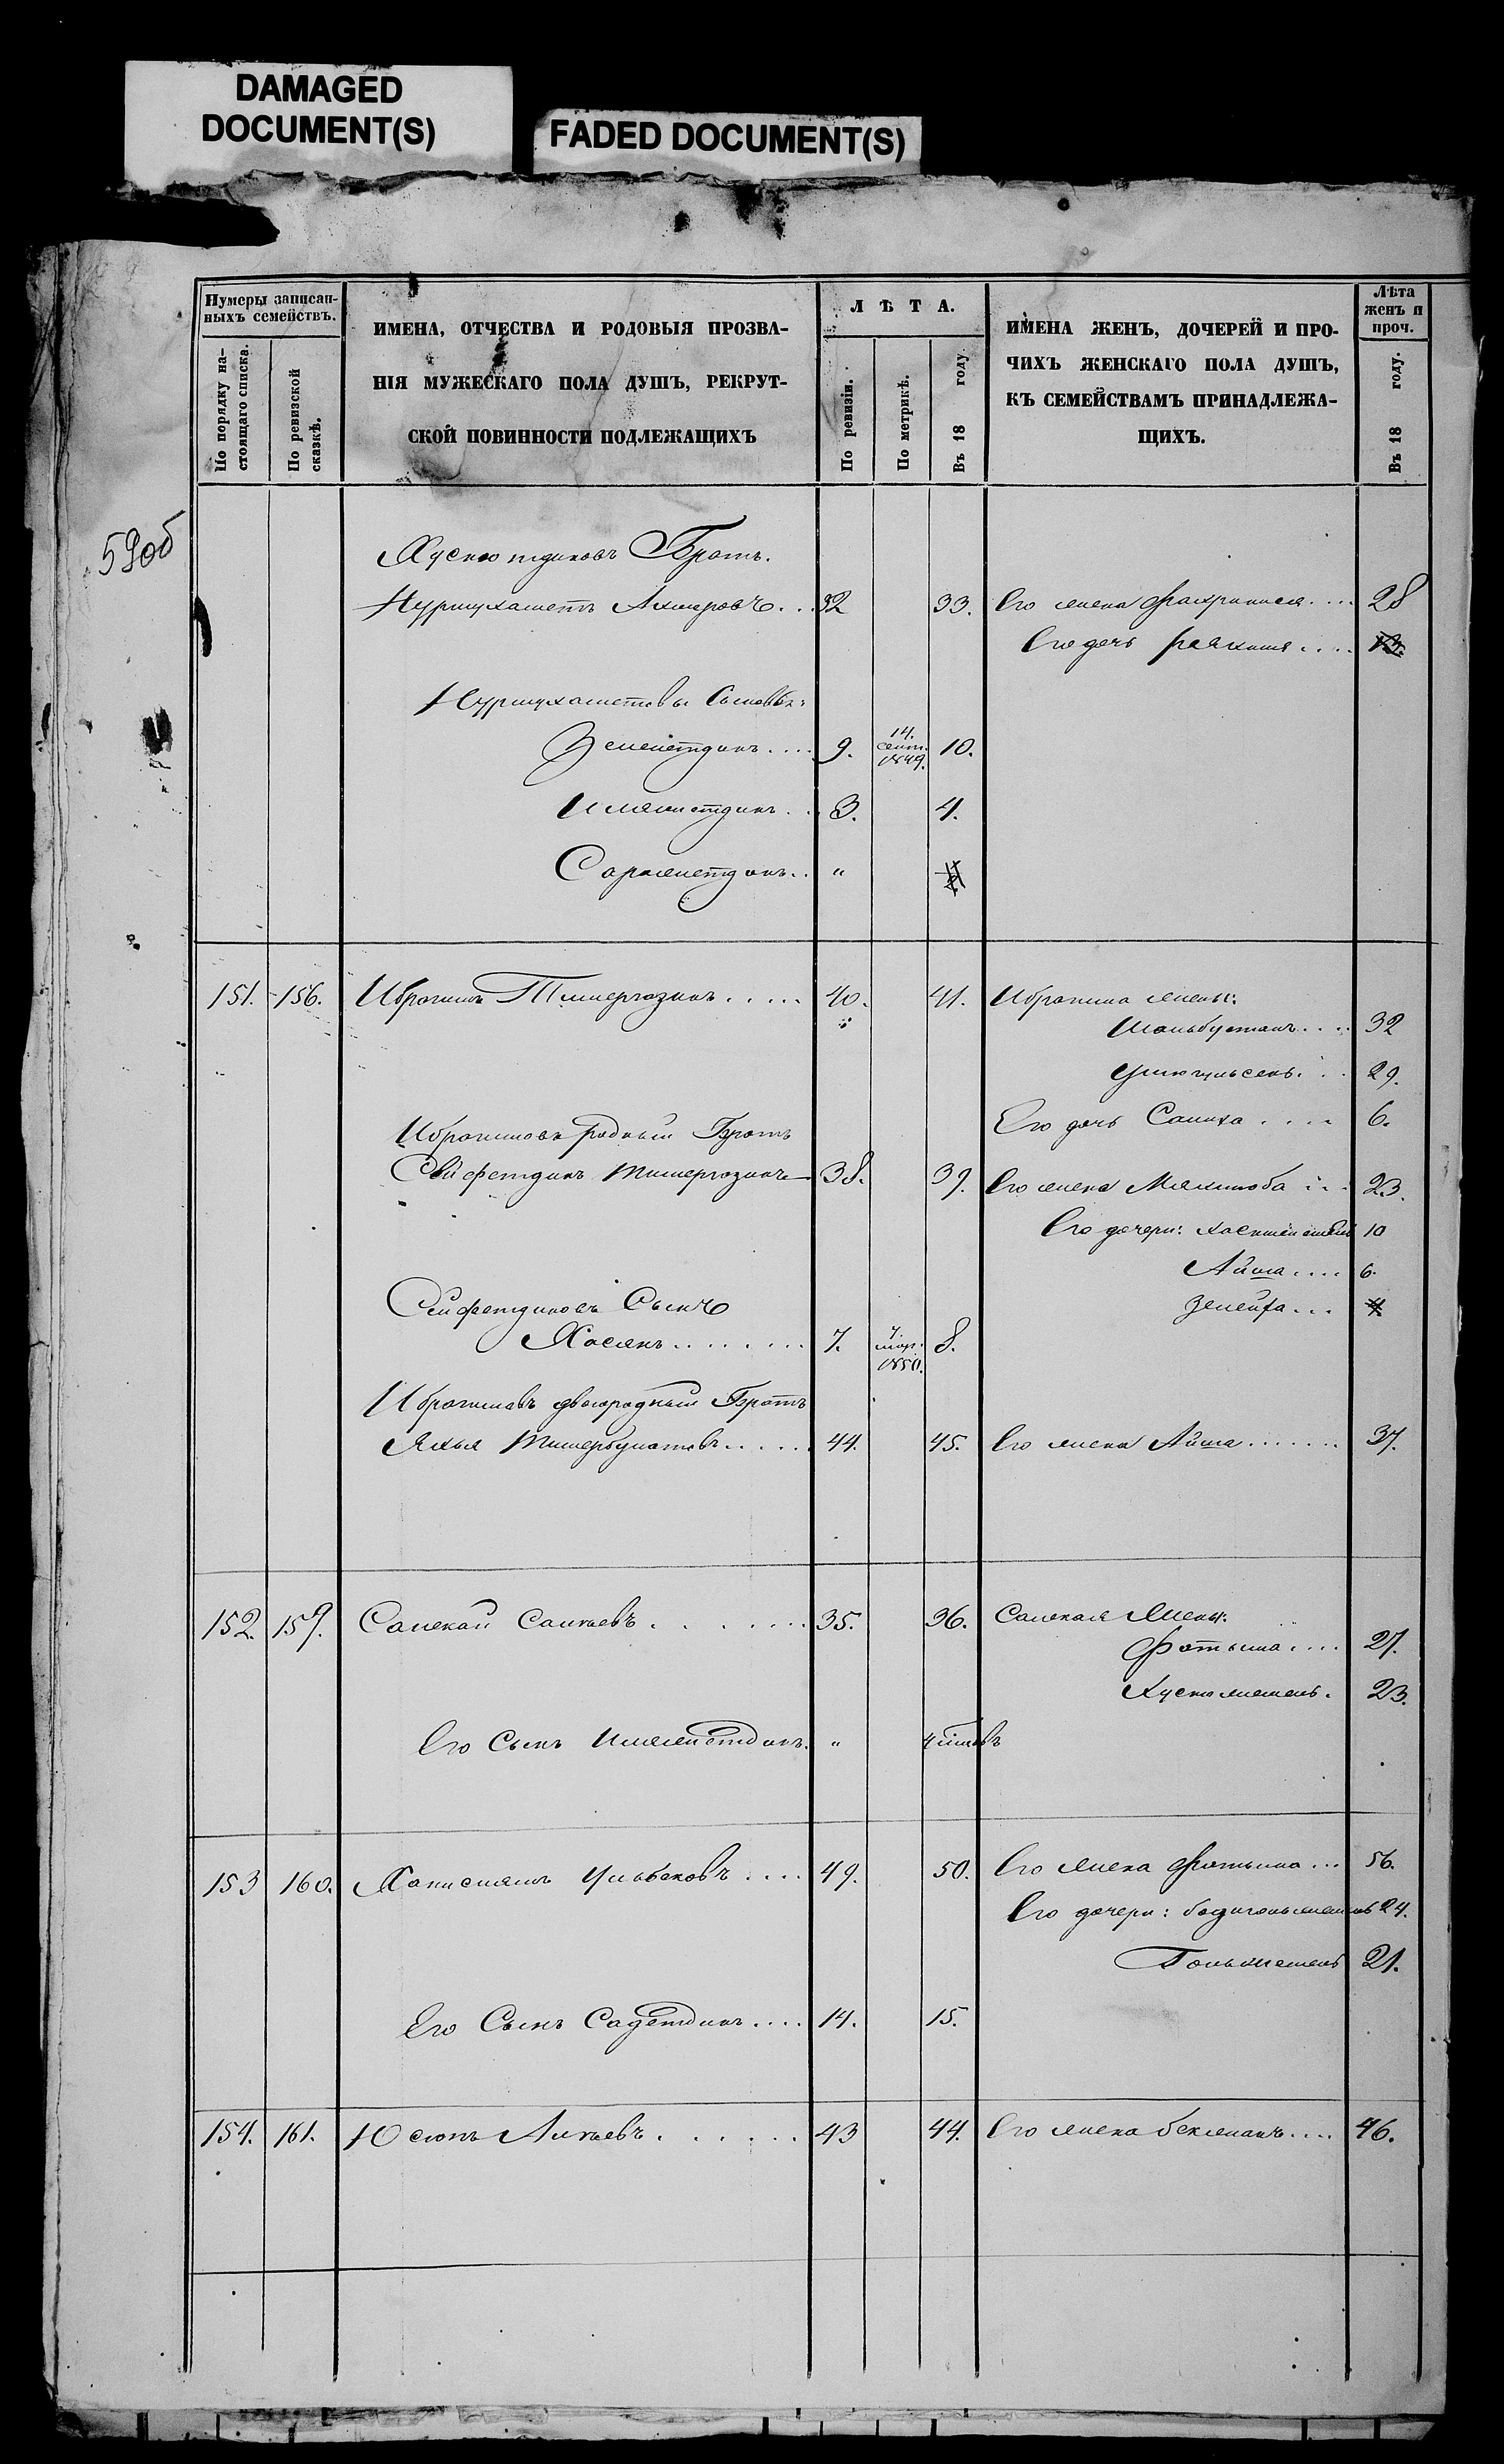 DAMAGED
DOCUMENT(S)
FADED DOCUMENT(S)
Нумеры записан-
ныхъ семействъ.
По порядку на-
стоящаго списка.
По ревизской
сказкѣ.
ИМЕНА, ОТЧЕСТВА И РОДОВЫЯ ПРОЗВА-
НІЯ МУЖЕСКАГО ПОЛА ДУШЪ, РЕКРУТ-
СКОЙ ПОВИННОСТИ ПОДЛЕЖАЩИХЪ
ЛѢТА.
По ревизіи.
По метрикѣ.
Въ 18 году.
ИМЕНА ЖЕНЪ, ДОЧЕРЕЙ И ПРО-
ЧИХЪ ЖЕНСКАГО ПОЛА ДУШЪ,
КЪ СЕМЕЙСТВАМЪ ПРИНАДЛЕЖА-
ЩИХЪ.
Лѣта
женъ и
проч.
Въ 18 году.
59об
Хуснотдиновъ Братъ.
Нурмухаметъ Ахмеровъ... 32 33. Его жена Фахриниса.... 28
Его дочь 13.
Нурмухаметовы Сыновья:
Зелейтдинъ.... 9. 14. сент. 1849. 10.
Имаметдинъ.. 3. 4.
.. "
151. 156. Ибрагимъ Тимергазинъ..... 40. 41. Ибрагима жены:
Шаньбустанъ.... 32
Уммугульсень... 29.
Его дочь Салиха.... 6.
Ибрагимовъ родный Братъ
Сейфетдинъ Тимергазинъ 38. 39. Его жена ... 23.
Его дочери: 10
Айша.... 6.
Зелейха... 4
Сейфетдиновъ Сынъ
Хасянъ........ 7. 7. мар. 1850. 8.
Ибрагимовъ двоюродный Братъ
Яхья Тимербулатовъ...... 44. 45. Его жена Айша....... 37.
152. 159. Салекай Салкаевъ....... 35. 36. Салекая Жены:
Фатыма.... 27.
Хуснижемалъ. 23.
Его Сынъ Имаметдинъ. "
153 160. Ханисламъ Ильбековъ.... 49. 50. Его жена Фатыма... 56.
Его дочери: Бадигольжемалъ 24.
21.
Его Сынъ Садетдинъ.... 14. 15.
154. 161. Юсюпъ Алкаевъ....... 43 44. Его жена Бекжанъ.... 46.